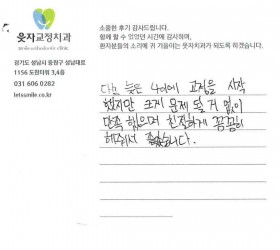 웃자교정치과
경기도 성남시 중원구 성남대로
1156 도광타워 3,4층
031 606 0282
letusmile.co.kr
소중한 후기 감사드립니다.
함께 할 수 있었던 시간에 감사하며,
환자분들의 소리에 귀 기울이는 웃자치과가 되도록 하겠습니다.
다소 늦은 나이에 교정을 시작
했지만 크게 문제 될 거 없이
만족 했으며 친절하게 꼼꼼히
해주셔서 좋았습니다.